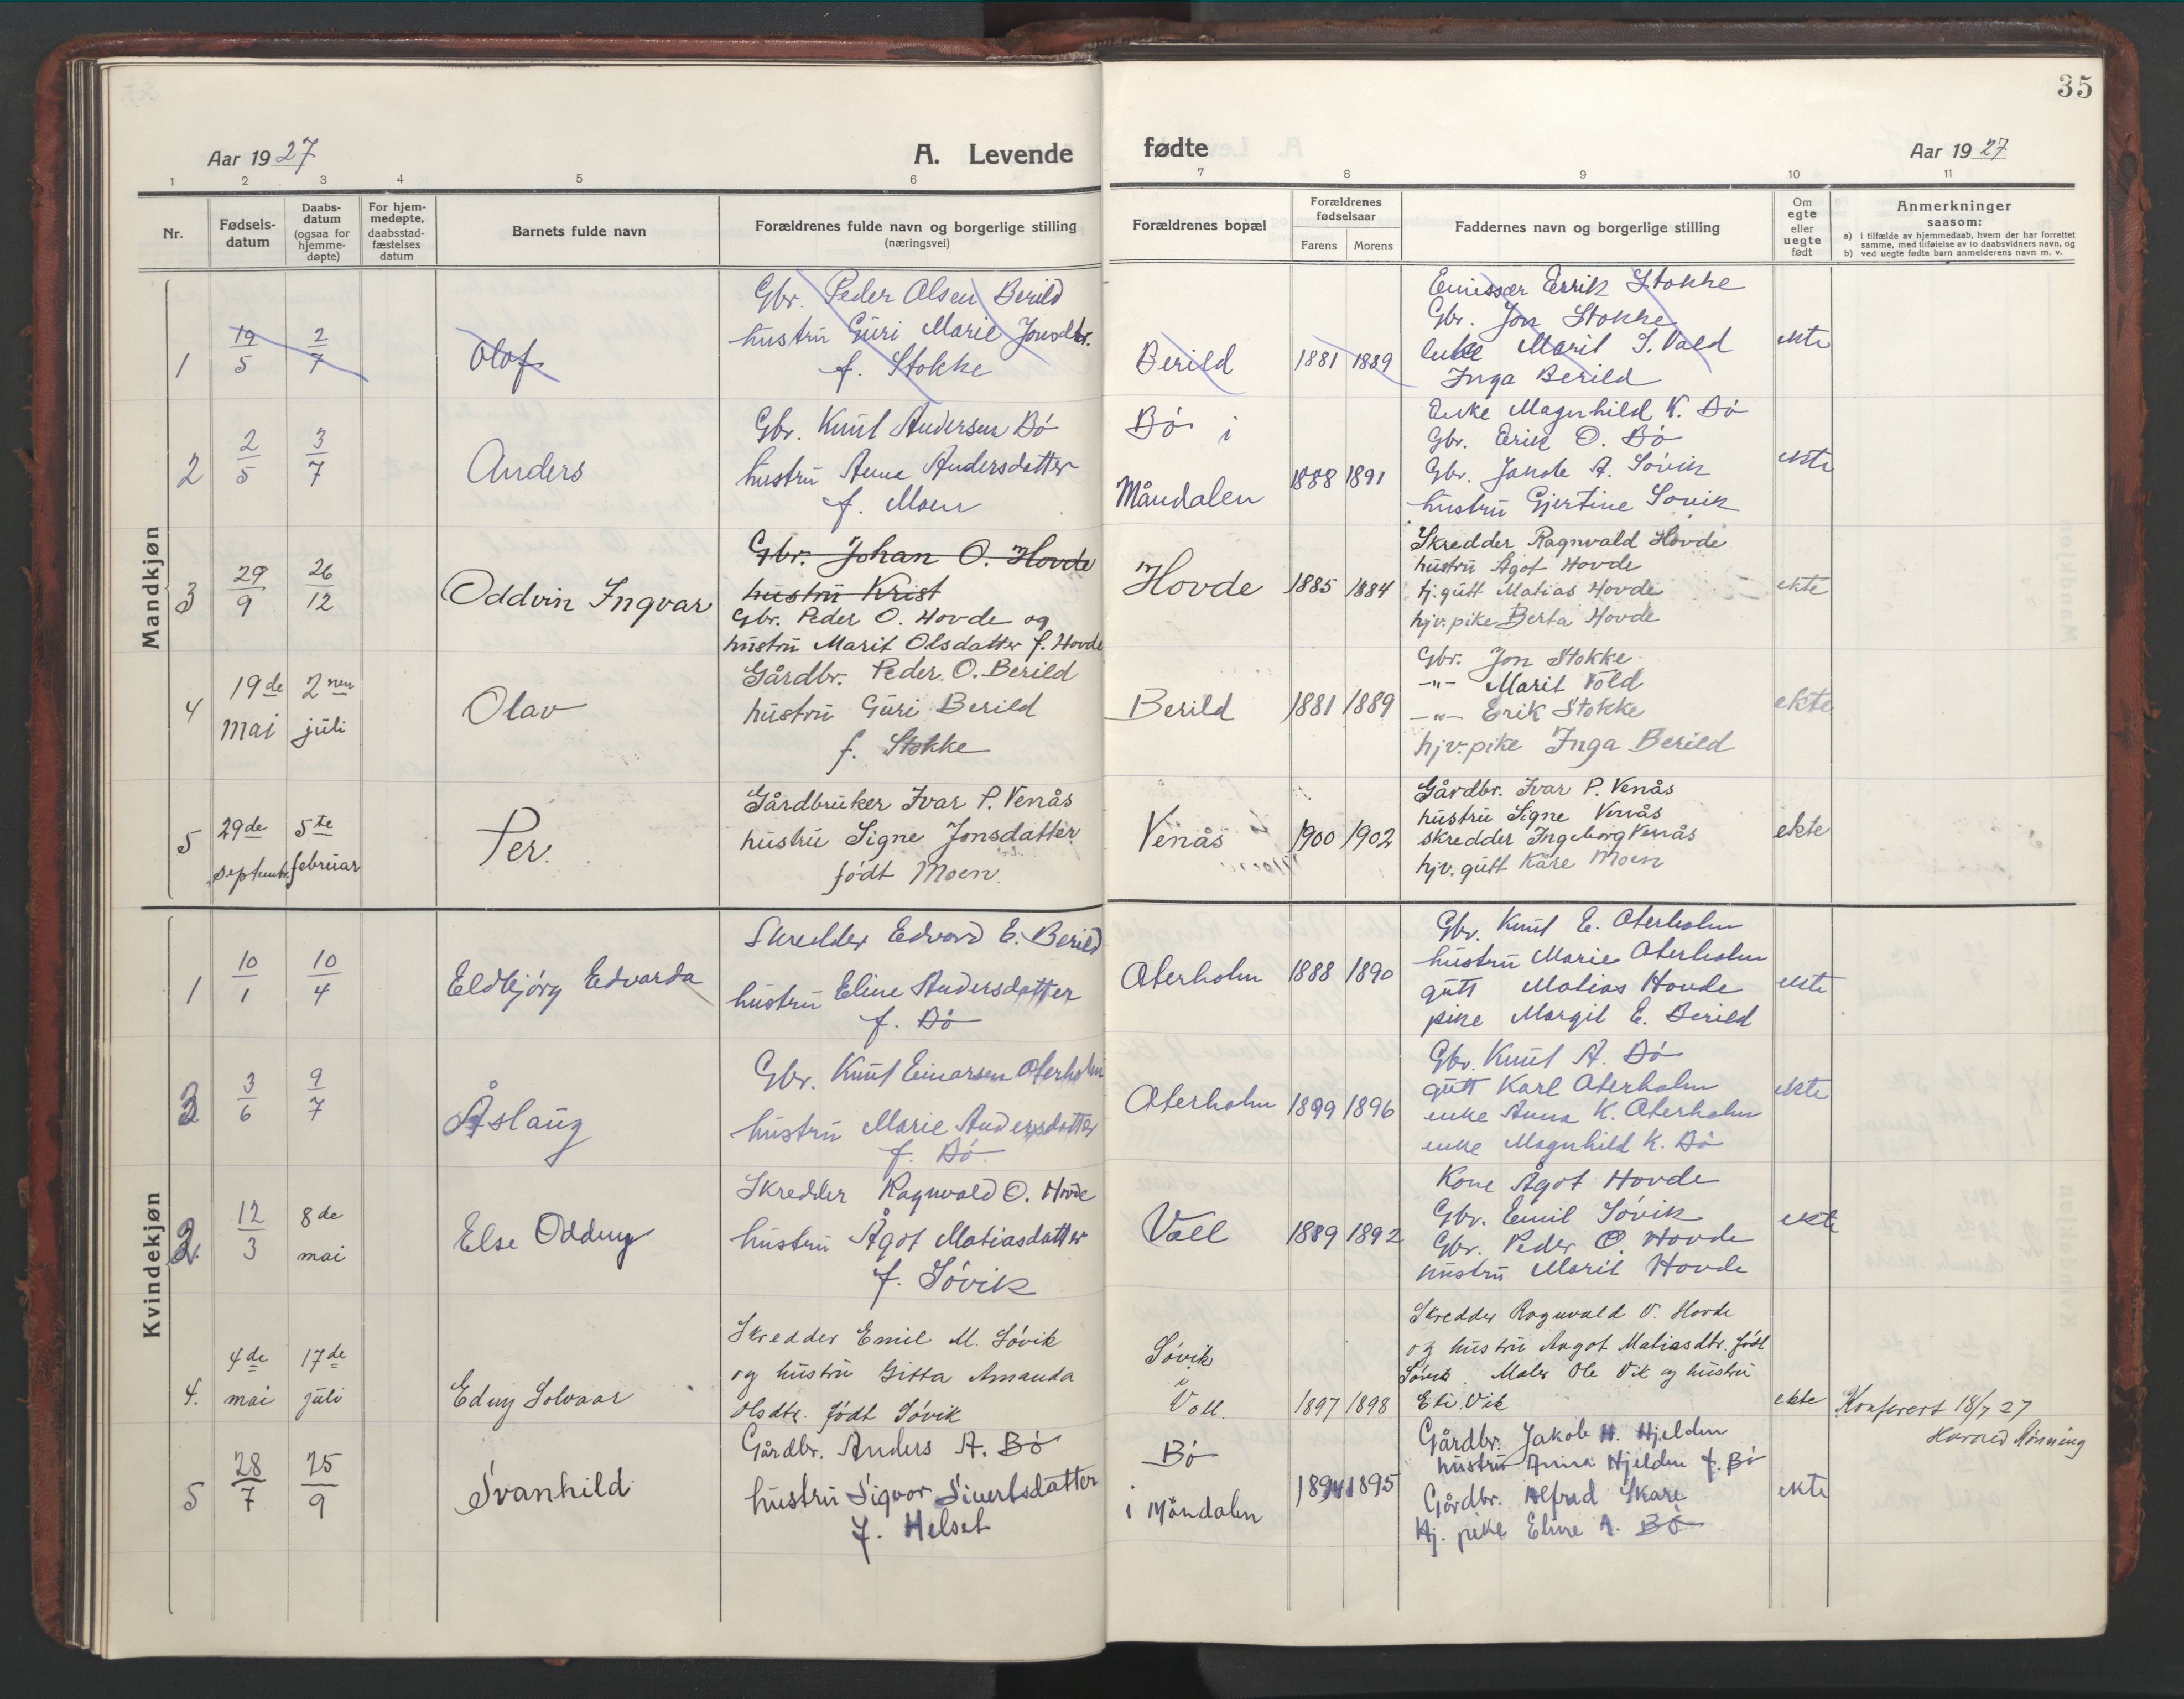 35
Aar 1927 A. Levende fødte Aar 1927
1 2 3 4 5 6 7 8 9 10 11
Nr.
Fødsels-
datum
Daabs-
datum
(ogsaa for
hjemme-
døpte)
For hjem-
medøpte,
daabsstad-
fæstelses
datum
Barnets fulde navn
Forældrenes fulde navn og borgerlige stilling
(næringsvei)
Forældrenes bopæl
Forældrenes
fødselsaar
Farens Morens
Faddernes navn og borgerlige stilling
Om
egte
eller
uegte
født
Anmerkninger
saasom:
a) i tilfælde av hjemmedaab, hvem der har forrettet
samme, med tilføielse av to daabsvidners navn, og
b) ved uegte fødte barn anmelderens navn m. v.
Mandkjøn
1
19/5
2/7
Olaf
Gbr. Peder Olsen Berild
hustru Guri Marie Jonsdtr.
f. Stokke
Berild
1881 1889
Emissær Errik Stokke
Gbr. Jon Stokke
Marit S. Vold
Inga Berild
ekte
2
2/5
3/7
Anders
Gbr. Knut Andersen Bö
hustru Anna Andersdatter
f. Moen
Bö i
Måndalen
1888 1891
Enke Magnhild K. Bö
Gbr. Erik O. Bö
Gbr. Jakob A. Sövik
hustru Gjertine Sövik
ekte
3
29/9
26/12
Oddvin Ingvar
Gbr. Johan O. Hovde
hustru Krist
Gbr. Peder O. Hovde og
hustru Marit Olsdatter f. Hovde
Hovde
1885 1884
Skredder Ragnvald Hovde
hustru Ågot Hovde
hj. gutt Matias Hovde
hjv. pike Berta Hovde
ekte
4
19de
mai
2nen
juli
Olav
Gårdbr. Peder O. Berild
hustru Guri Berild
f. Stokke
Berild
1881 1889
Gbr. Jon Stokke
-"- Marit Vold
-"- Erik Stokke
hjv. pike Inga Berild
ekte
5
29de
septembr.
5te
februar
Per.
Gårdbruker Ivar P. Venås
hustru Signe Jonsdatter
født Moen.
Venås
1900 1902
Gårdbr. Ivar P. Venås
hustru Signe Venås
skredder Ingeborg Venås
hjv. gutt Kåre Moen
ekte
Kvindekjøn
1
10/1
10/4
Eldbjörg Edvarda
Skredder Edvard E. Berild
hustru Eline Andersdatter
f. Bö
Oterholm
1888 1890
Gbr. Knut E. Oterholm
hustru Marie Oterholm
gutt Matias Hovde
pike Margit E. Berild
ekte
3
3/6
9/7
Åslaug
Gbr. Knut Einarsen Oterholm
hustru Marie Andersdatter
f. Bö.
Oterholm
1899 1896
Gbr. Knut A. Bö
gutt Karl Oterholm
enke Anna K. Oterholm
enke Magnhild K. Bö
ekte
2.
12/3
8de
mai
Else Oddny
Skredder Ragnvald O. Hovde
hustru Ågot Matiasdatter
f. Sövik
Voll
1889 1892
Kone Ågot Hovde
Gbr. Emil Sövik
Gbr. Peder O. Hovde
hustru Marit Hovde
ekte
4.
4de
mai
17de
juli
Edny Solvaar
Skredder Emil M. Sövik
og hustru Gitta Amanda
Olsdtr. født Sövik
Sövik
i
Voll.
1897 1898
Skredder Ragnvald O. Hovde
og hustru Aagot Matiasdtr. født
Sövik. Maler Ole Vik og hustru
Eli Vik
ekte
Konferert 18/7 27
Harald Rønning
5
28/7
25/9
Svanhild
Gårdbr. Anders A. Bö
hustru Sigvor Sivertsdatter
f. Helset
Bö
i Måndalen
1894 1895
Gårdbr. Jakob H. Hjelden
hustru Anna Hjelden f. Bö
Gårdbr. Alfred Skare
Hj. pike Eline A. Bö
ekte